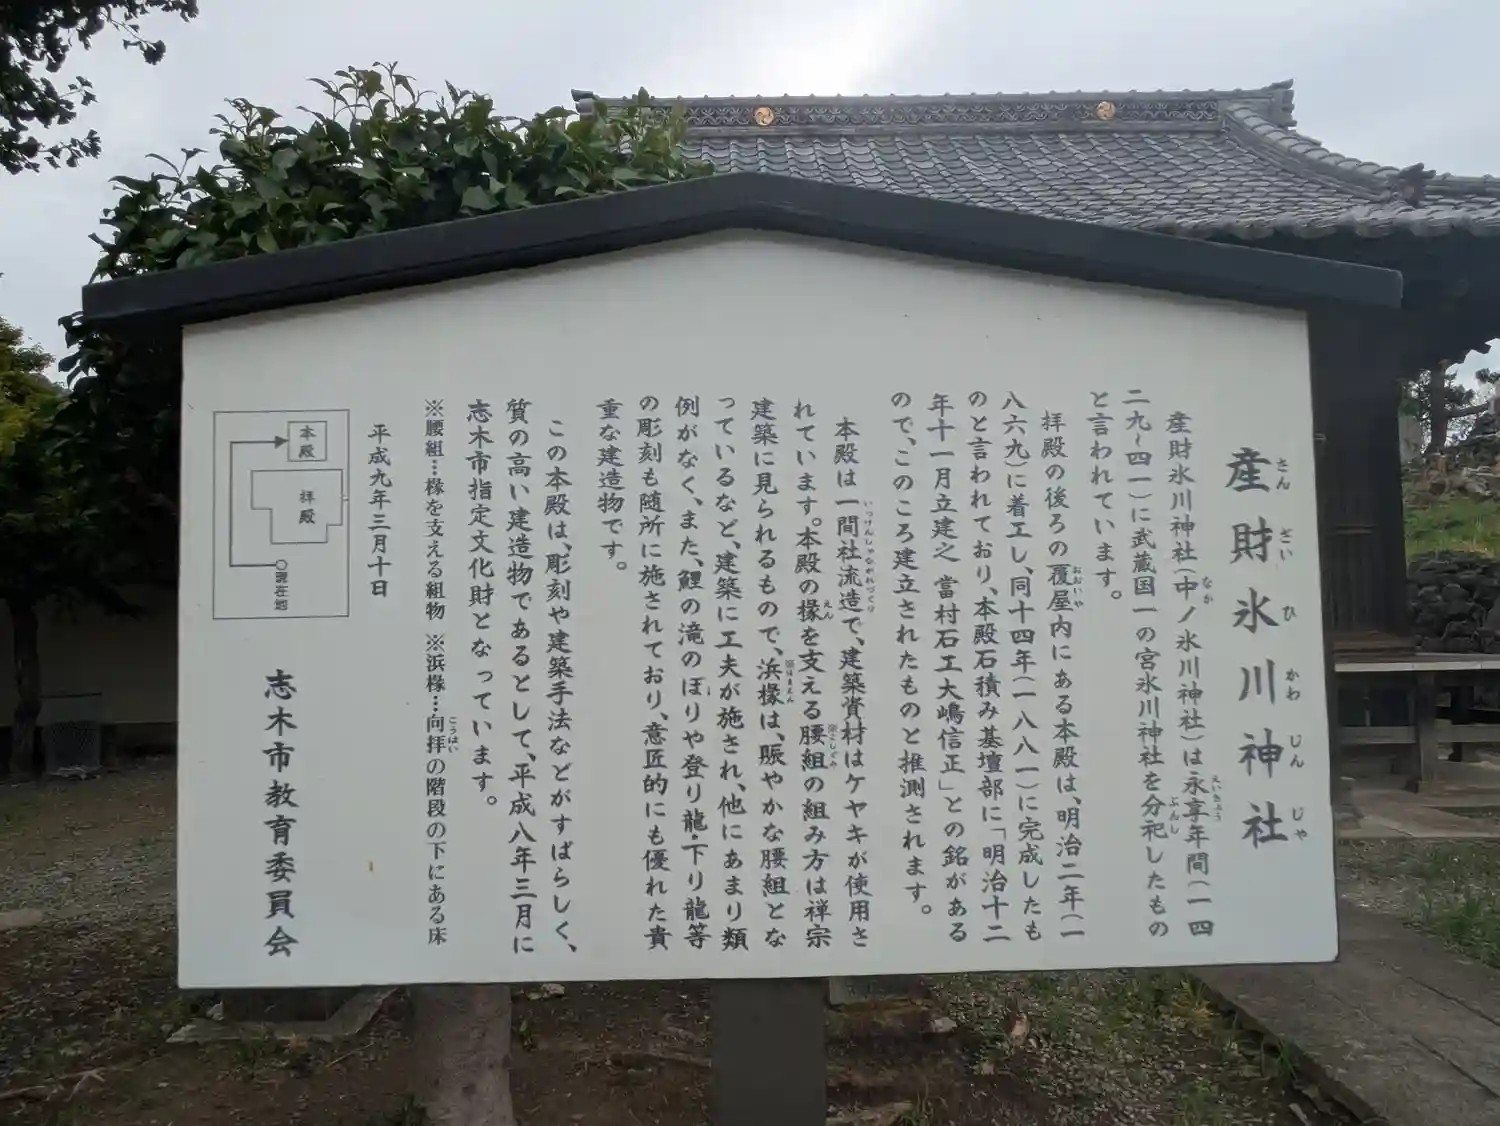 産財氷川神社
さん ざい ひ かわ じん じゃ
産財氷川神社(中ノ氷川神社)は永享年間(一四
なか
えいきょう
二九~四一)に武蔵国一の宮氷川神社を分祀したもの
ぶんし
と言われています。
拝殿の後ろの覆屋内にある本殿は、明治二年(一
おおいや
八六九)に着工し、同十四年(一八八一)に完成したも
のと言われており、本殿石積み基壇部に「明治十二
年十一月立建之 當村石工大嶋信正」との銘がある
ので、このころ建立されたものと推測されます。
本殿は一間社流造で、建築資材はケヤキが使用さ
いっけんしゃながれづくり
れています。本殿の椽を支える腰組の組み方は禅宗
えん
※こしぐみ
建築に見られるもので、浜椽は、賑やかな腰組とな
※はまえん
っているなど、建築に工夫が施され、他にあまり類
例がなく、また、鯉の滝のぼりや登り龍・下り龍等
の彫刻も随所に施されており、意匠的にも優れた貴
重な建造物です。
この本殿は、彫刻や建築手法などがすばらしく、
質の高い建造物であるとして、平成八年三月に
志木市指定文化財となっています。
※腰組…椽を支える組物 ※浜椽…向拝の階段の下にある床
こうはい
平成九年三月十日
志木市教育委員会
本殿
拝殿
現在地